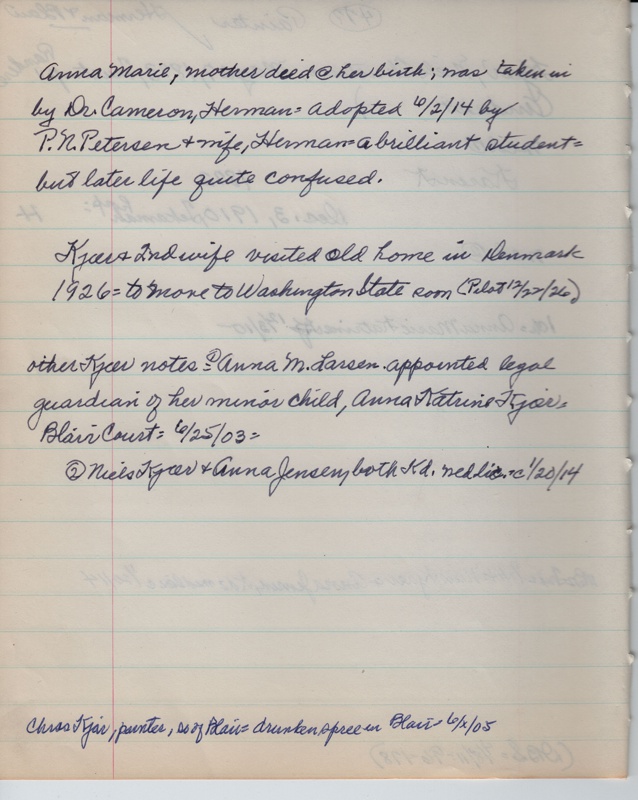 Anna Marie, mother died @ her birth; was taken in
by Dr. Cameron, Herman = adopted 6/2/14 by
P. N. Petersen + wife, Herman = a brilliant student =
but later life quite confused.
Kjær + 2nd wife visited old home in Denmark
1926 = to move to Washington State soon (Pilot 12/22/26)
other Kjær notes = ① Anna M. Larsen appointed legal
guardian of her minor child, Anna Katrine Kjær =
Blair Court = 6/25/03 =
② Niels Kjær + Anna Jensen, both Kd. wed lic. = c 1/20/14
Chras Kjær, painter, so of Blair = drunken spree in Blair = 6/x/05